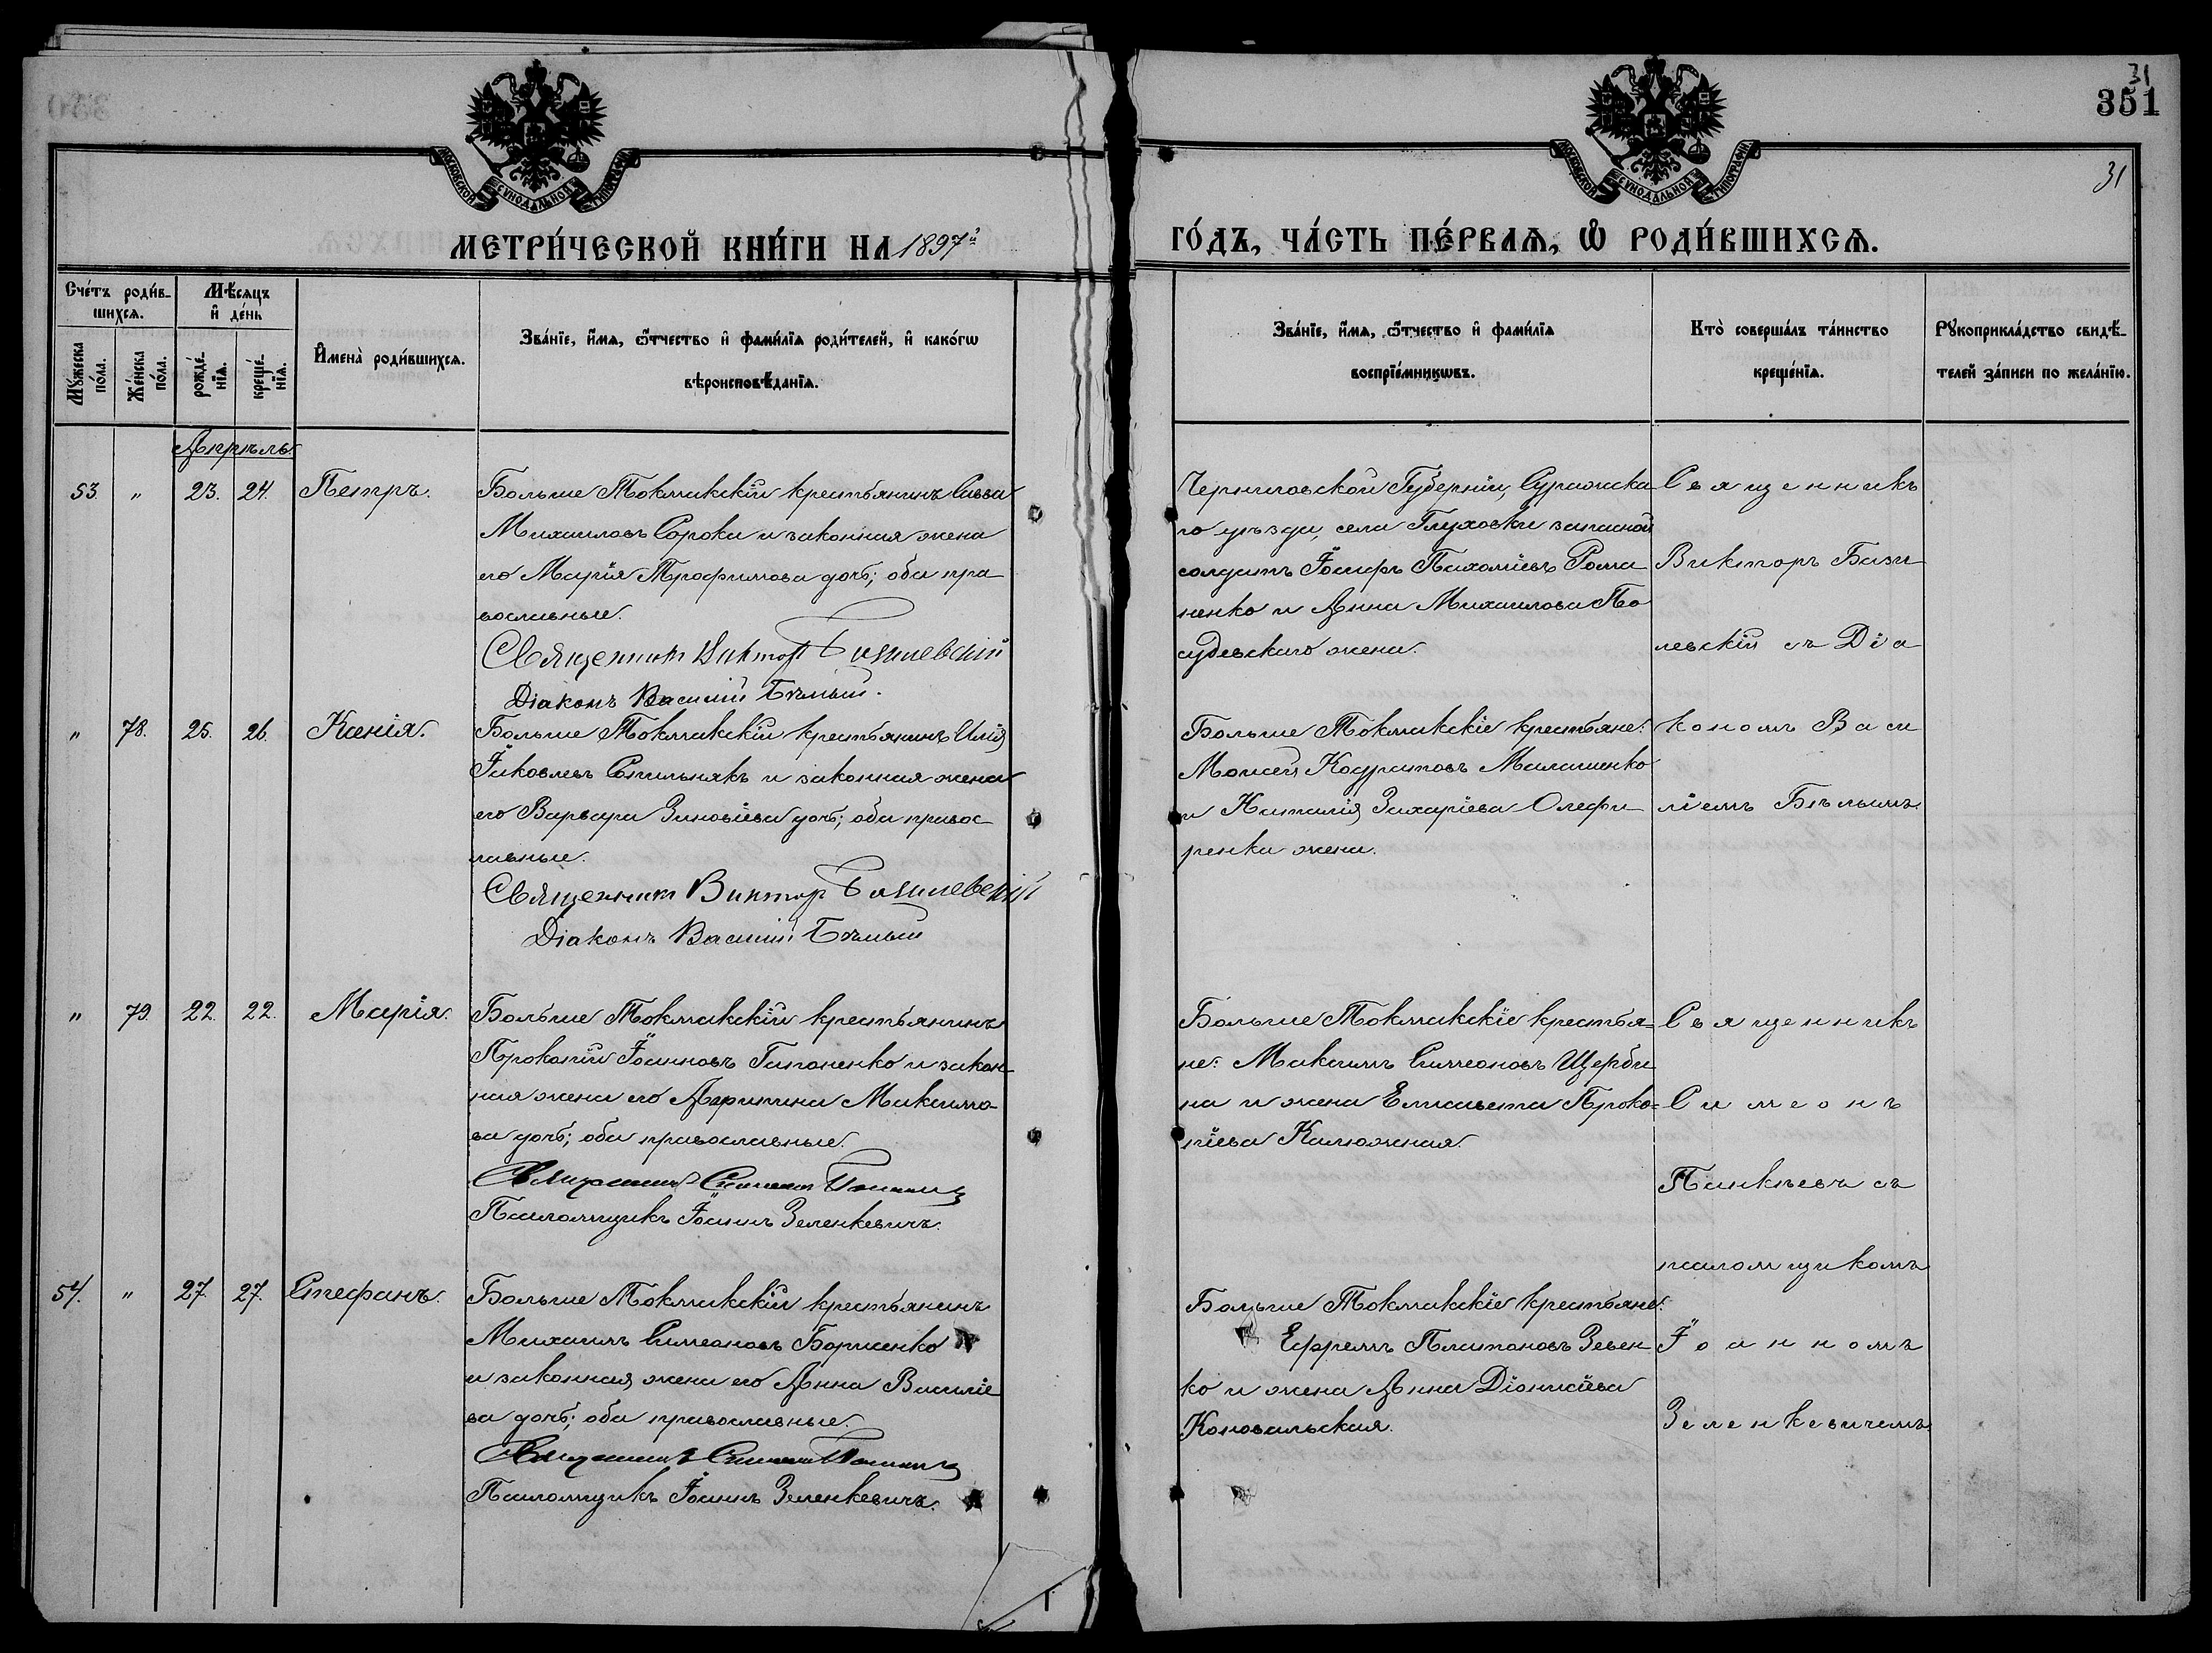 31
351
31
МОСКОВСКОЙ СѴНОДАЛЬНОЙ ТИПОГРАФІИ
МОСКОВСКОЙ СѴНОДАЛЬНОЙ ТИПОГРАФІИ
МЕТРИ́ЧЕСКОЙ КНИ́ГИ НА 1897й
ГО́ДЪ, ЧА́СТЬ ПЕ́РВАѦ, Ѡ҆ РОДИ́ВШИХСѦ.
Сче́тъ роди́в-
шихсѧ.
Мѣ́сѧцъ
и҆ де́нь
Мꙋ́жеска по́ла.
Же́нска по́ла.
рожде́-
нїѧ.
креще́-
нїѧ.
И҆мена̀ роди́вшихсѧ.
Зва́нїе, и҆́мѧ, ѻ҆́тчество и҆ фами́лїѧ роди́телей, и҆ како́гѡ
вѣроисповѣ́данїѧ.
Зва́нїе, и҆́мѧ, ѻ҆́тчество и҆ фами́лїѧ
воспрїе́мникѡвъ.
Кто̀ соверша́лъ та́инство
креще́нїѧ.
Рꙋкоприкла́дство свидѣ́-
телей за́писи по жела́нїю.
Апрѣль
53. " 23. 24. Петръ.
Больше Токмакскій крестьянинъ Савва
Михаиловъ Сорока и законная жена
его Марія Трофимова дочь; оба пра-
вославные.
Священникъ Виктор Базилевскій
Діаконъ Василій Бѣлый.
Черниговской Губерніи, Суражска
го уѣзда, села Глуховки запасной
солдатъ Іосифъ Пахоміевъ Рома
ненко и Анна Михаилова По
судевскаго жена.
Священникъ
Викторъ Бази
левскій съ Діа
" 78. 25. 26. Ксенія.
Больше Токмакскій крестьянинъ Илія
Іаковлевъ Сопильнякъ и законная жена
его Варвара Зиновіева дочь; оба правос-
лавные.
Священник Виктор Базилевскій
Діаконъ Василій Бѣлый
Больше Токмакскіе крестьяне:
Моисей Кодратовъ Малашенко
и Наталія Захаріева Олефи-
ренка жена.
кономъ Васи
ліемъ Бѣлымъ.
" 79. 22. 22. Марія.
Больше Токмакскій крестьянинъ
Прокопій Іоанновъ Гапоненко и закон-
ная жена его Агриппина Максимо-
ва дочь; оба православные.
Священникъ Симеонъ
Псаломщикъ Іоаннъ Зеленкевичъ.
Больше Токмакскіе крестья=
не: Максимъ Симеоновъ Щерби
на и жена Елисавета Проко=
піева Калюжная.
Священникъ
Симеонъ
Панкѣевъ съ
псаломщикомъ
54. " 27. 27. Стефанъ.
Больше Токмакскій крестьянинъ
Михаилъ Симеоновъ Борисенко
и законная жена его Анна Василіе
ва дочь; оба православные.
Священникъ Симеонъ
Псаломщикъ Іоаннъ Зеленкевичъ.
Больше Токмакскіе крестьяне:
Ефремъ Платоновъ Зевен
ко и жена Анна Діонисіева
Коновальская.
Іоанномъ
Зеленкевичемъ.